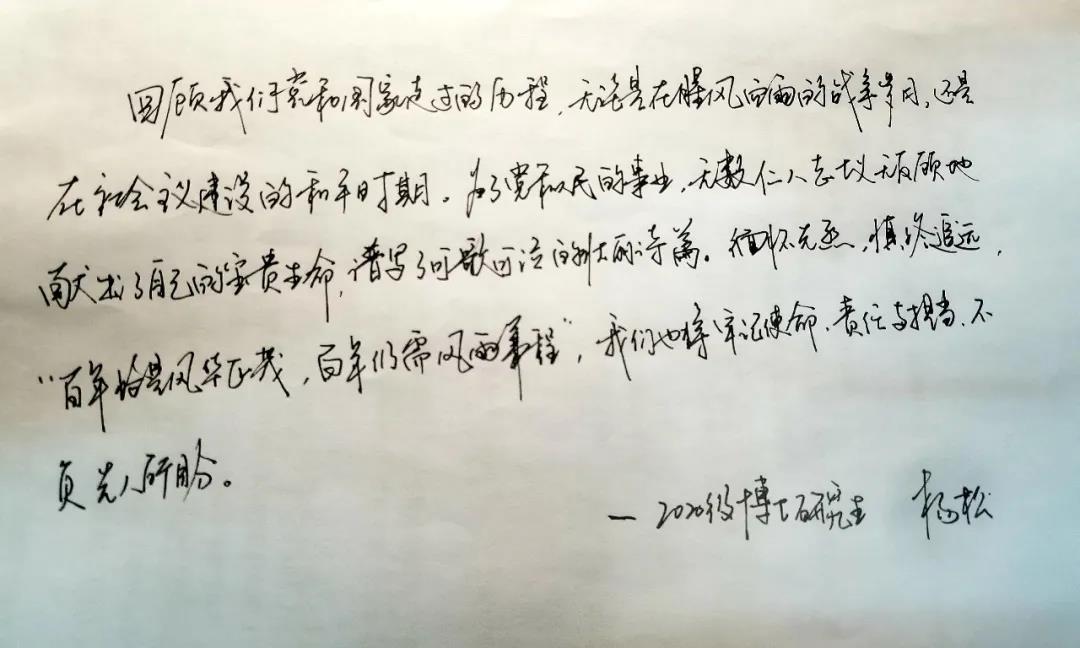 回顾我们党和国家走过的历程，无论是在暴风雨雨的战争岁月，还是
在社会主义建设的和平时期。为了党和人民的事业，无数仁人志士义无反顾地
献出了自己的宝贵生命，谱写了可歌可泣的壮丽诗篇。缅怀先烈，慎终追远，
“百年恰是风华正茂，百年仍需风雨兼程”，我们也将牢记使命、责任与担当、不
负先人所盼。
— 2020级博士研究生 杨松